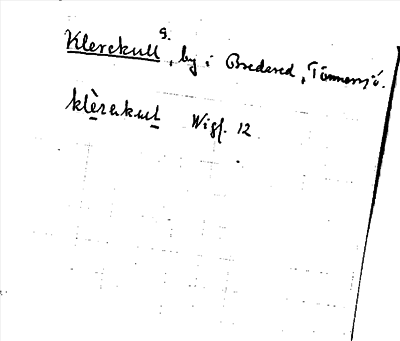 Klerekull s., by i Bredared, Tönnersjö.
klèrekult Wigf. 12